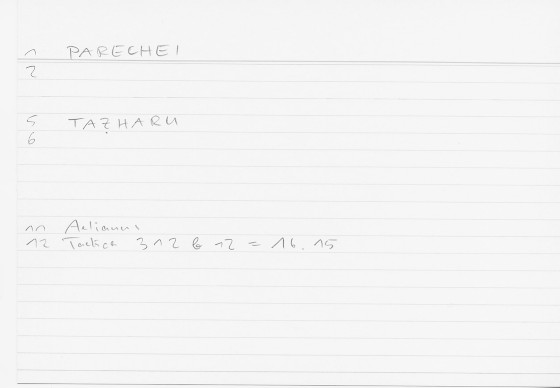 1 PARECHEI
2
5 TAẒHARU
6
11 Aelianus
12 Tactica 312 B 12 = 16.15